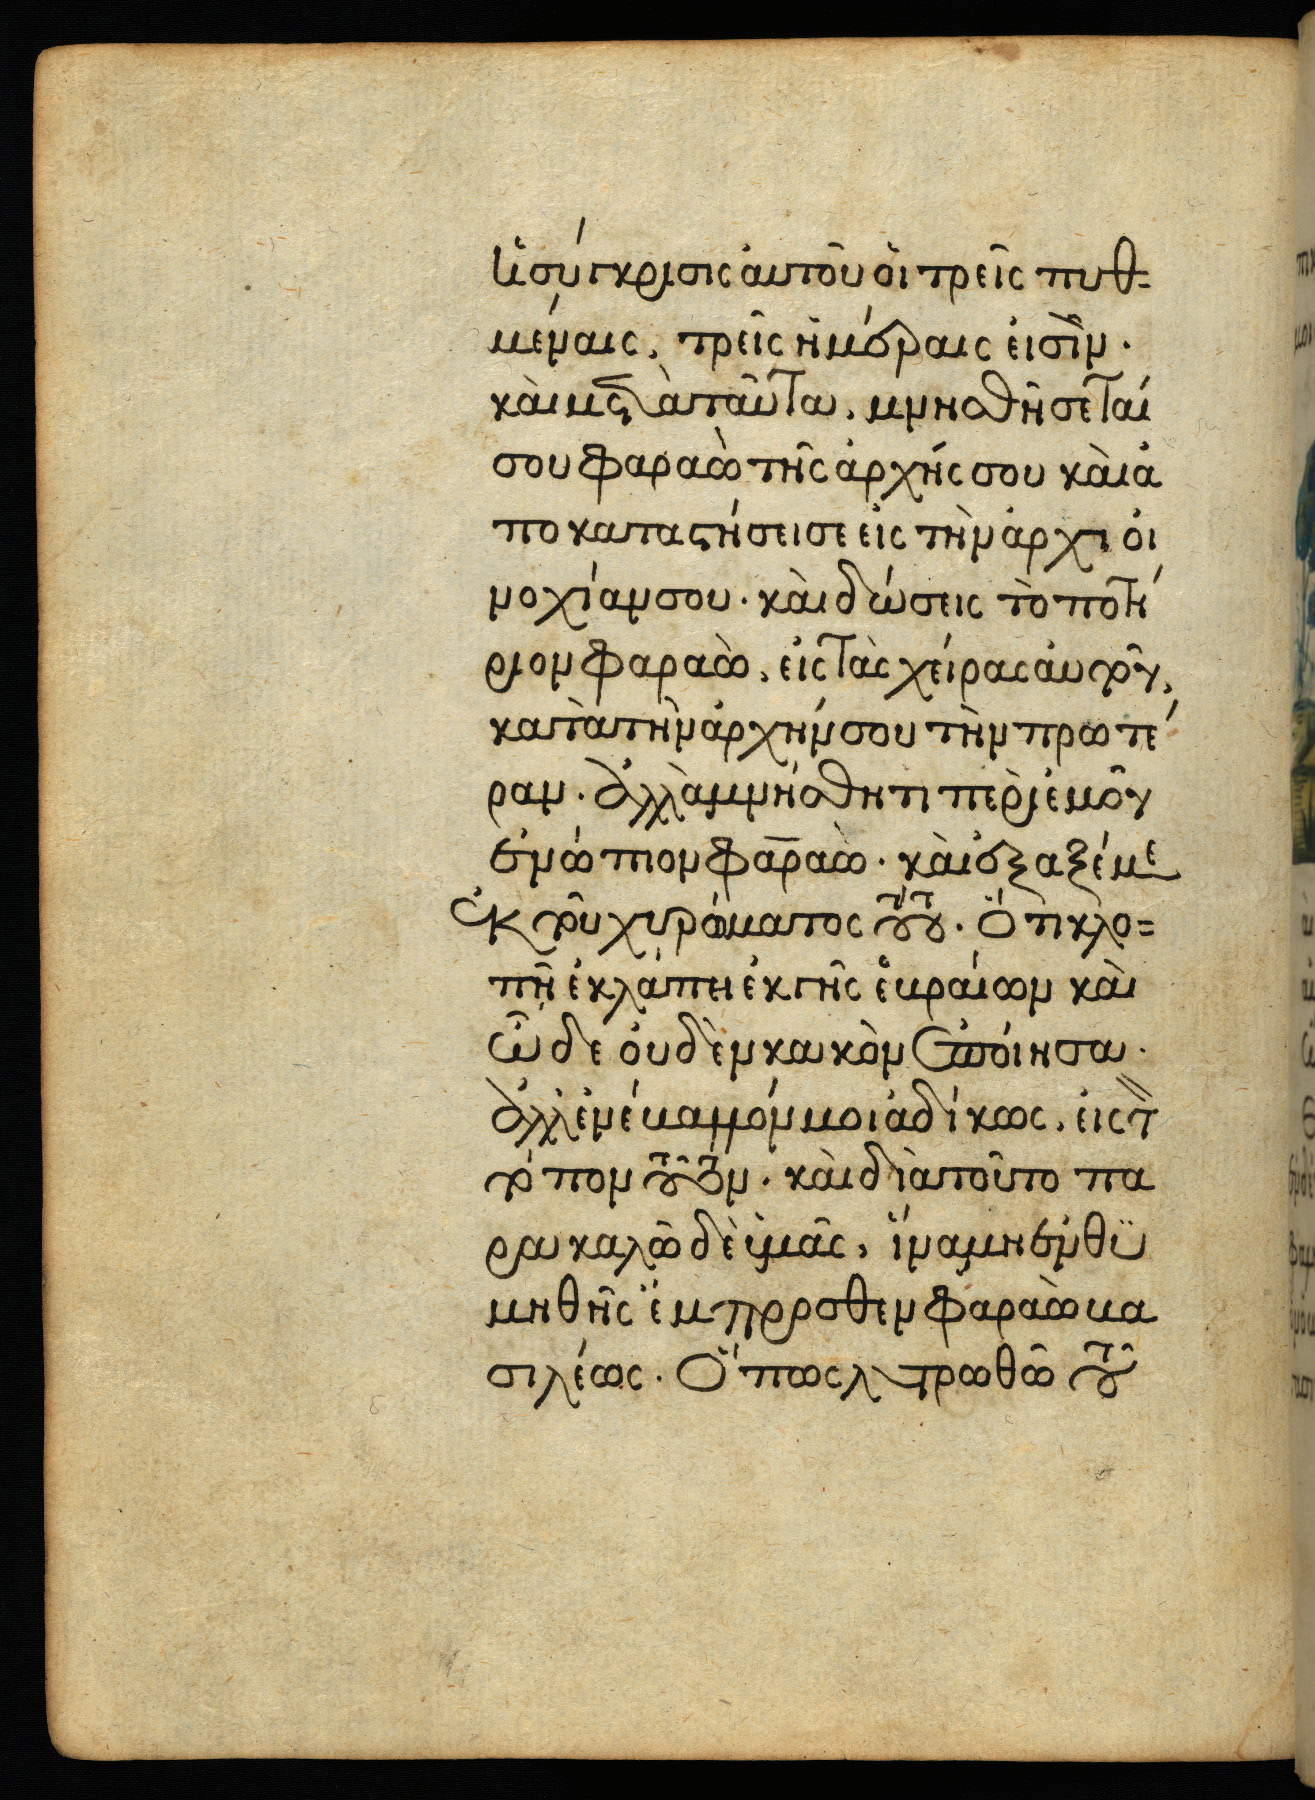 ἡ σύγκρισις ἀυτοῦ ὁι τρεῖς πυθ=
μέναις, τρεῖς ἡμέραις ἐισῒν.
κὰι μετὰ ταῦτα, μνησθήσεταί
σου φαραὼ τῆς ἀρχής σου κὰι ἀ
ποκαταστήσει σε ἐις τὴν ἀρχι οἰ
νοχίαν σου. κὰι δώσεις τὸ ποτή
ριον φαραὼ, ἐις τὰς χείρας ἀυτοῦ,
κατὰ τὴν ἀρχήν σου τὴν πρωτέ
ραν. ἀλλὰ μνήσθητι περὶ ἐμοῦ
ἐνώπιον φαραὼ. κὰι ἐξαξέ με
ἐκ τοῦ χυρώματος τούτου. Ὅτι κλο=
πῆ ἐκλάπη ἐκ γῆς ἑβραίων κὰι
ὧδε ὀυδὲν κακὸν ἐποίησα.
ἀλλ ἐνέβαλλόν μοι ἀδίκως, ἐις τὸν
τόπον τοῦτον. κὰι διὰ τοῦτο πα
ρακαλῶ δὲ ὑμᾶς, ἵνα μη ἐνθϋ
μηθῆς ἔμπροσθεν φαραὼ βα
σιλέως. Ὅπως λυτρωθῶ τοῦ